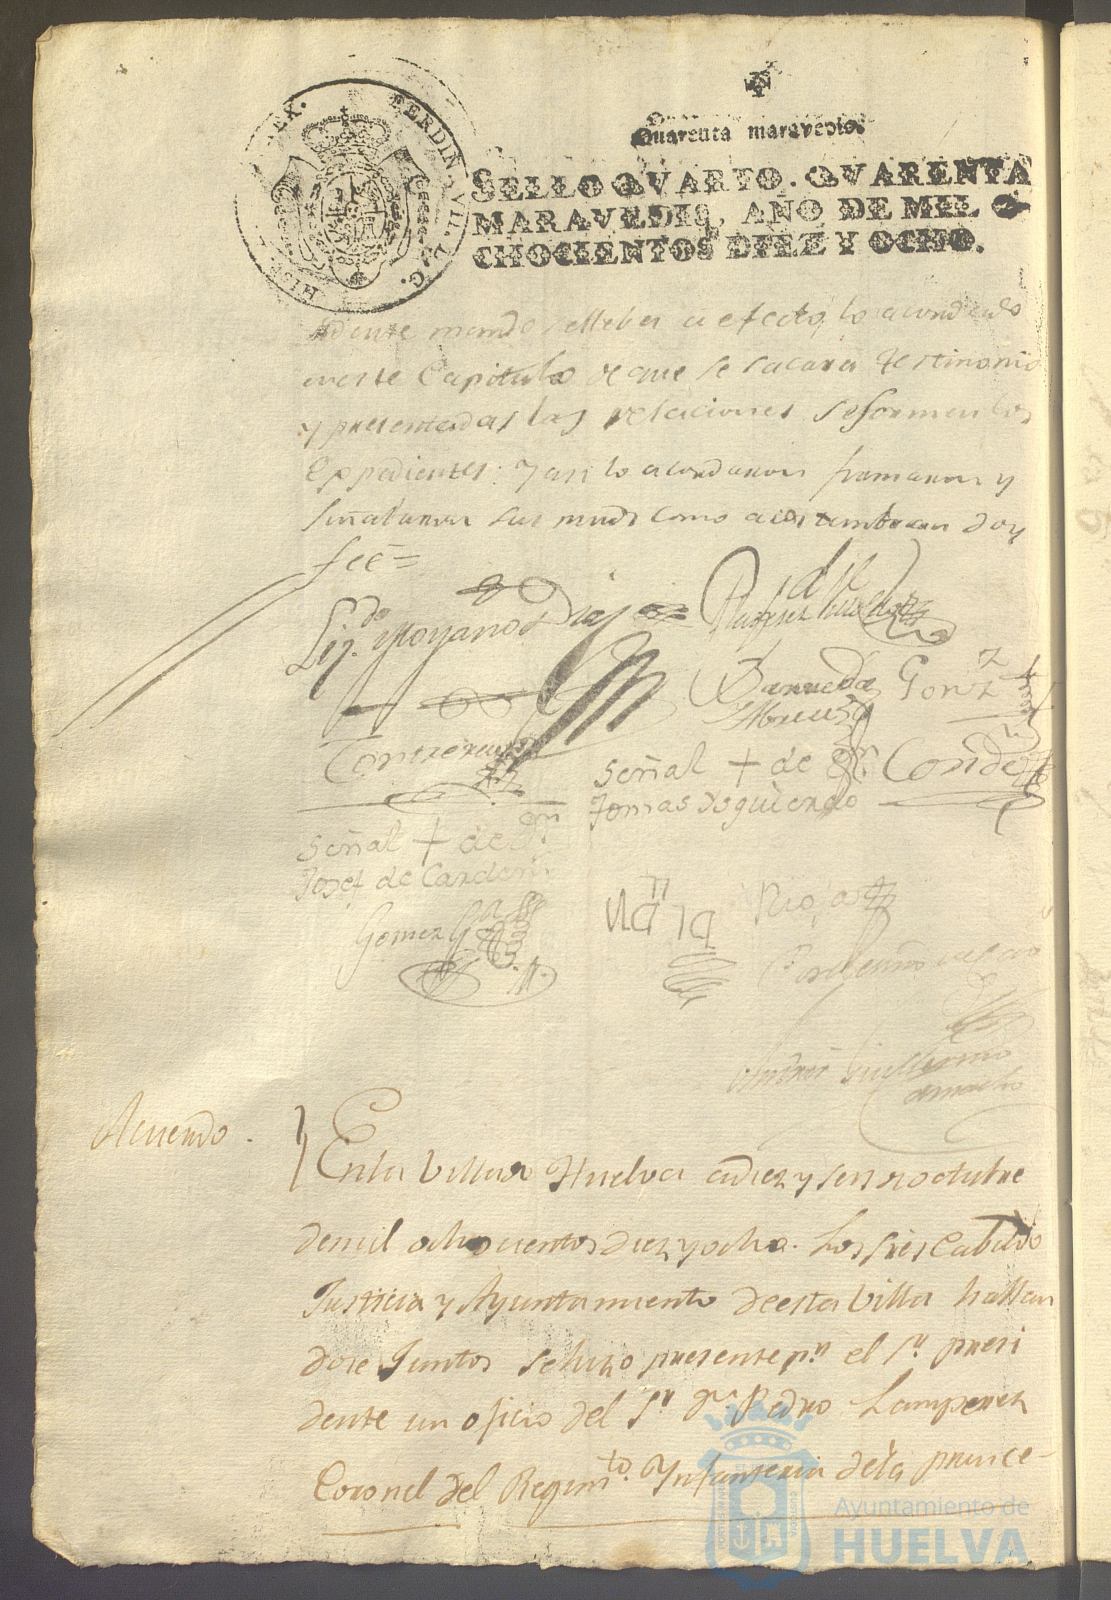 HISP. REX. FERDIN. VII. D. G.
Quarenta maravedis.
SELLO QVARTO. QVARENTA
MARAVEDIS, AÑO DE MIL O
CHOCIENTOS DIEZ Y OCHO.
dente mando llebar a efecto lo acordado
en este Capitulo de que se sacara testimonio
y presentadas las relaciones se formen los
Expedientes: Y asi lo acordaron firmaron y
señalaron sus mrds como acostumbran doy
fee=
Liz.do Moyano Diaz
Barrueda Gonz
Contreras
Señal + de Dn. Conde
Tomas Ysquierdo
Señal + de Dn
Josef de Carden
Gomez
Rioja
Acuerdo.
En la Villa de Huelva a diez y seis de octubre
de mil ochocientos diez y ocho. Los sres Cabildo
Justicia y Ayuntamiento de esta Villa hallan
dose Juntos se hizo presente pr el sr presi
dente un oficio del Sr Dn Pedro Lamperez
Coronel del Regimto. Ynfanteria de la prince-
Ayuntamiento de
HUELVA